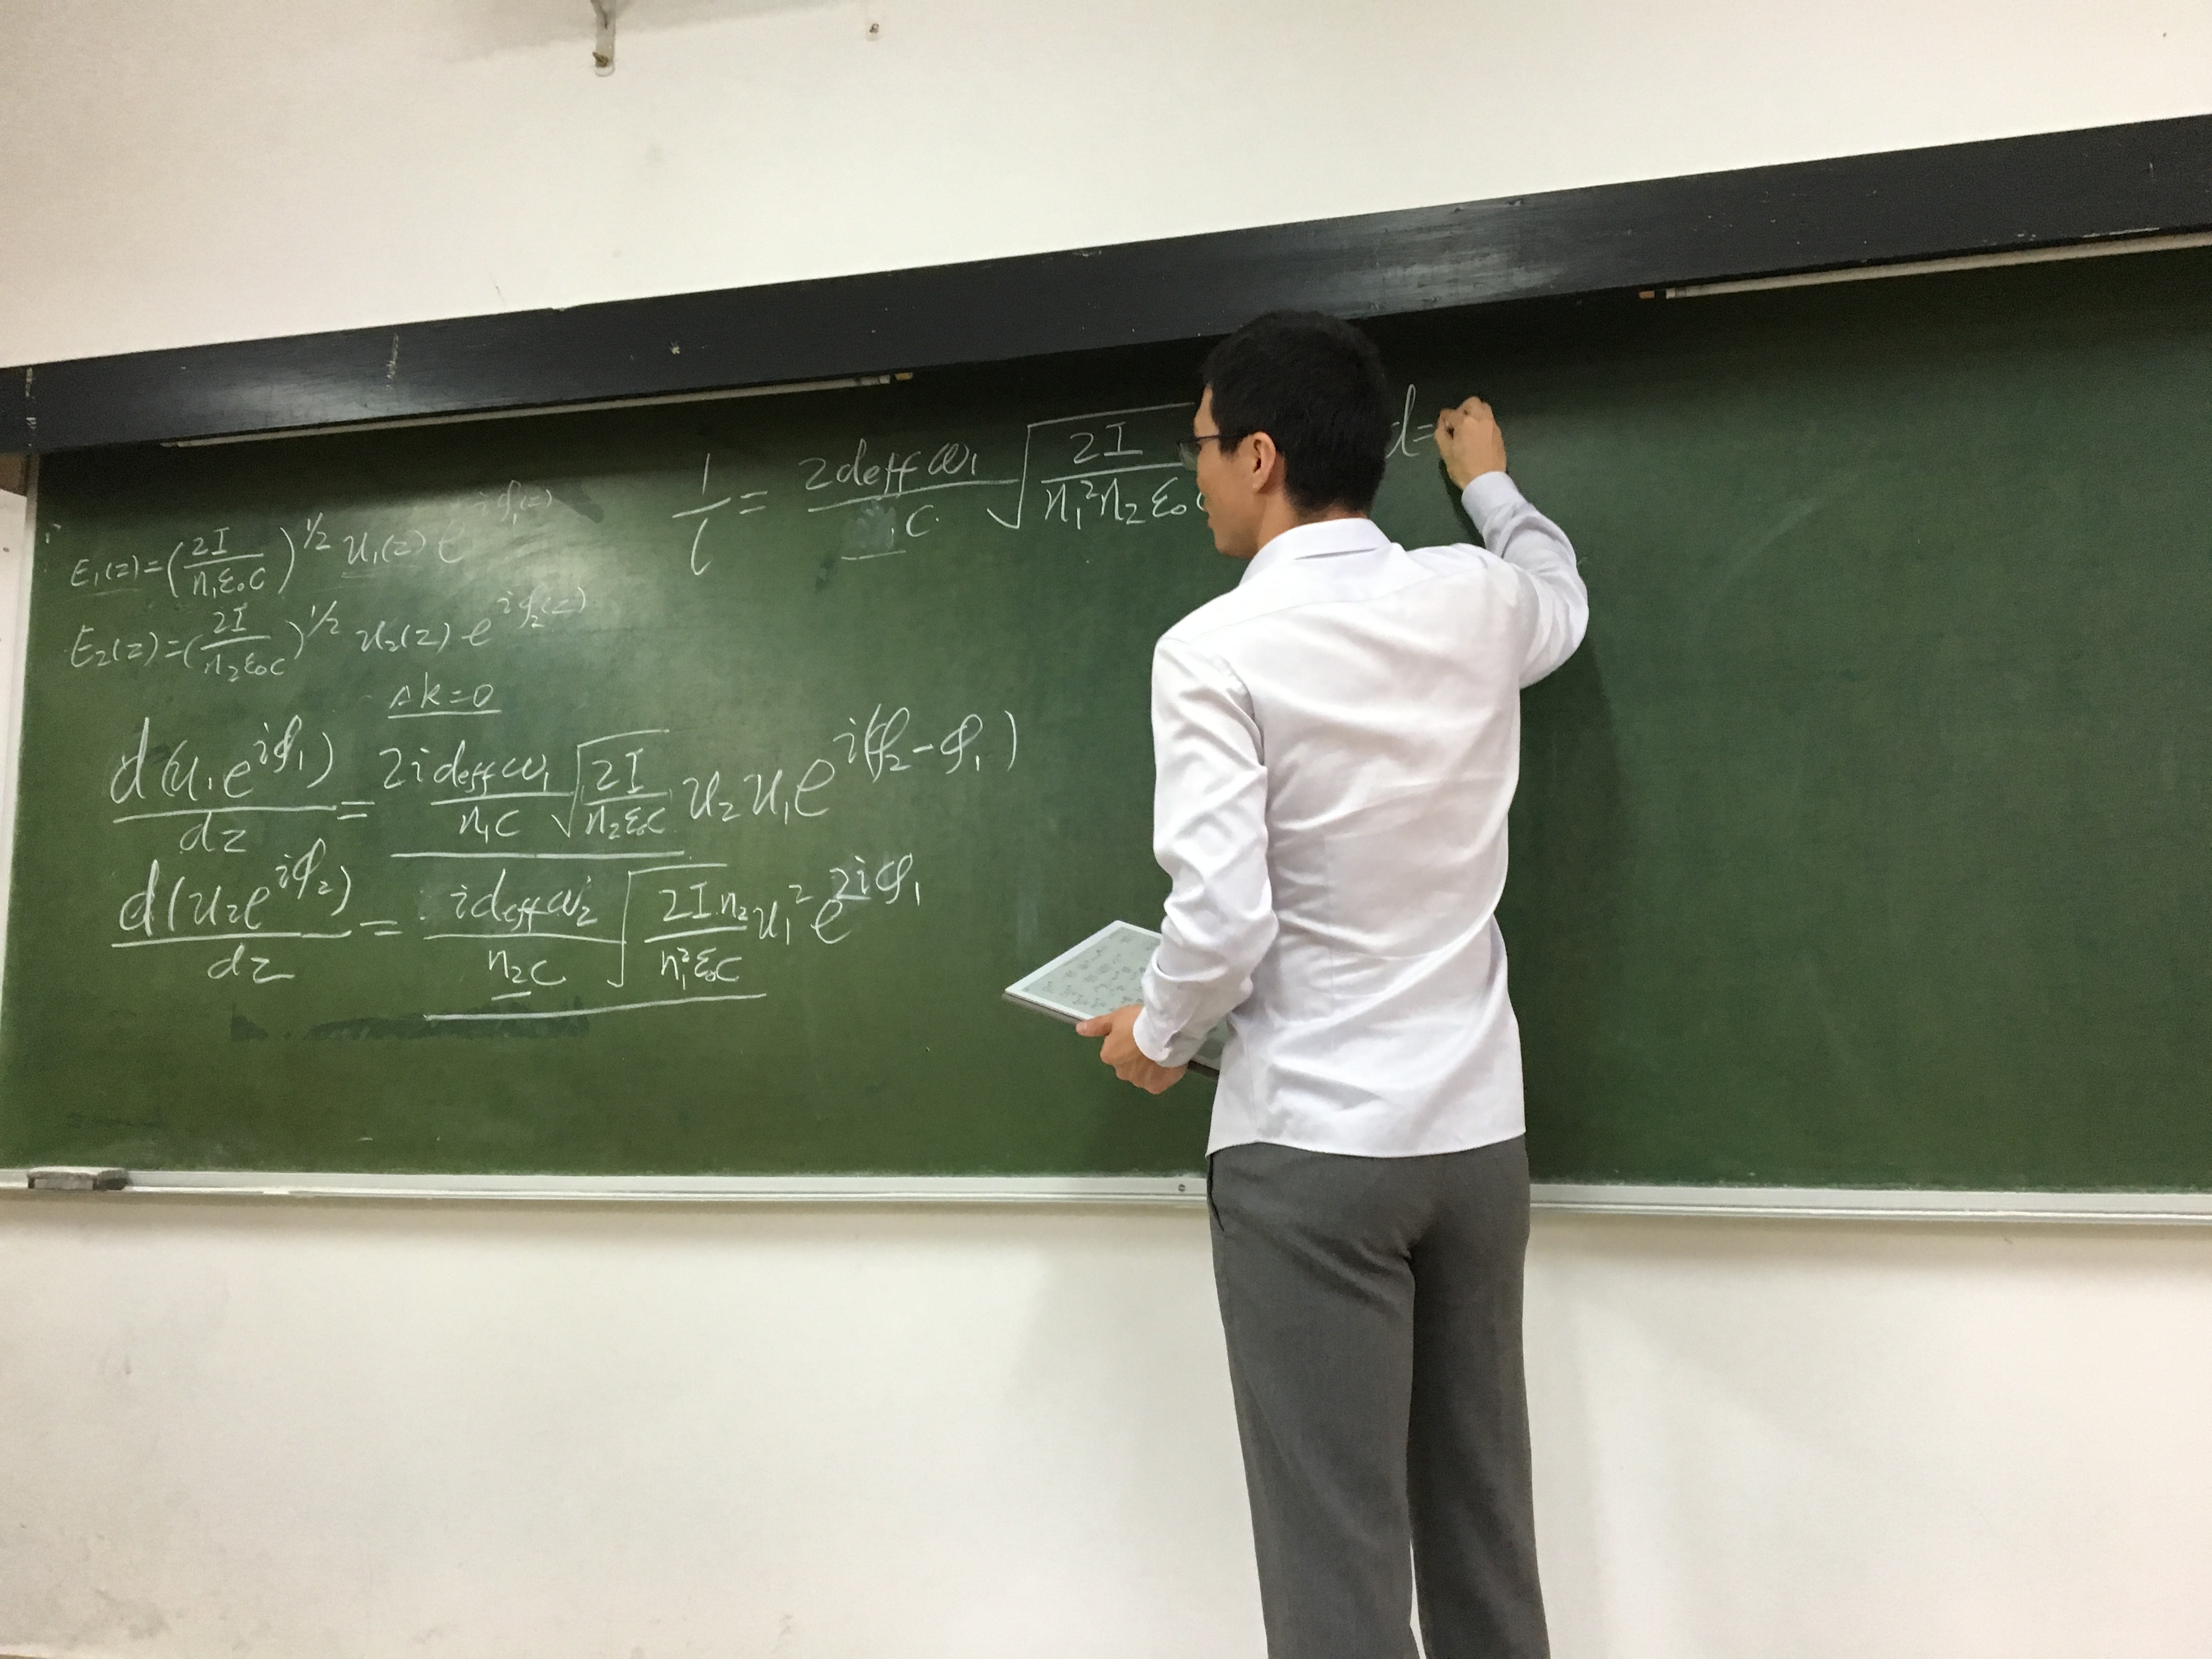 E₁(z)=(2I/n₁ε₀c)^1/2 u₁(z) e^iφ₁(z)
E₂(z)=(2I/n₂ε₀c)^1/2 u₂(z) e^iφ₂(z)
Δk=0
d(u₁e^iφ₁)/dz = 2i deff ω₁/n₁c √(2I/n₂ε₀c) u₂u₁e^i(φ₂-φ₁)
d(u₂e^iφ₂)/dz = i deff ω₂/n₂c √(2I n₂/n₁²ε₀c) u₁² e^2iφ₁
1/l = 2deff ω₁/c √(2I/n₁²n₂ε₀c
d=